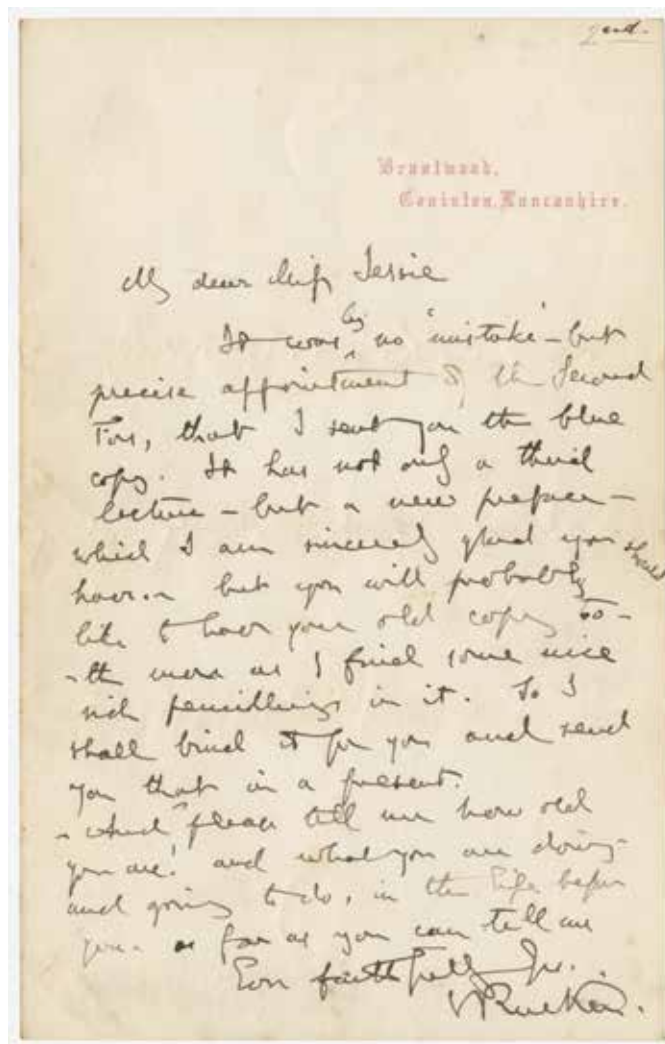 2nd.
Brantwood,
Coniston, Lancashire.
My dear Miss Jessie
It was by no 'mistake' - but
precise appointment of the Second
Fors, that I sent you the blue
copy. It has not only a third
lecture - but a new preface -
which I am sincerely glad you should
have. - but you will probably
like to have your old copy too -
- the more as I find some nice
side pencillings in it. So I
shall bind it for you and send
you that in a present.
- And please tell me how old
you are! and what you are doing -
and going to do, in the life before
you - as far as you can tell me
Ever faithfully Yrs.
J Ruskin.